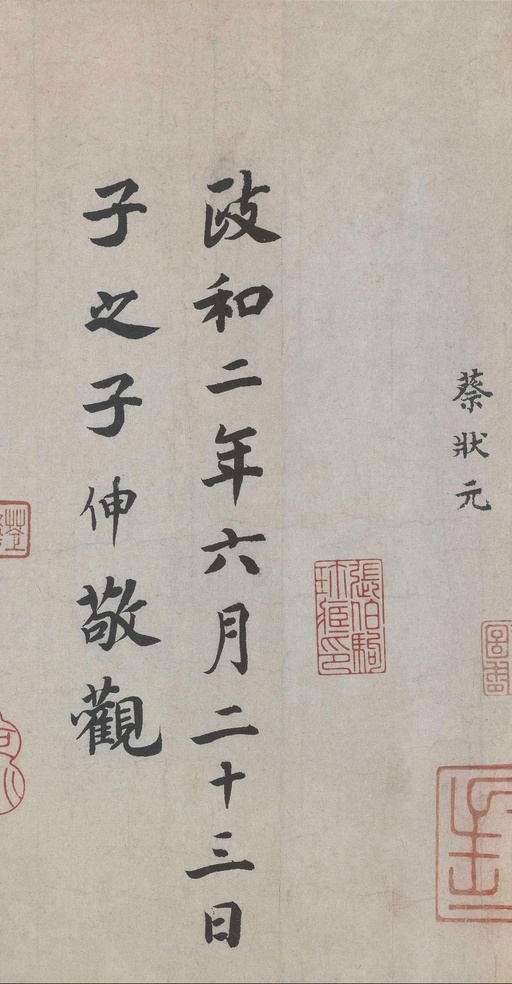 蔡狀元
政和二年六月二十三日
子之子伸敬觀
張伯駒